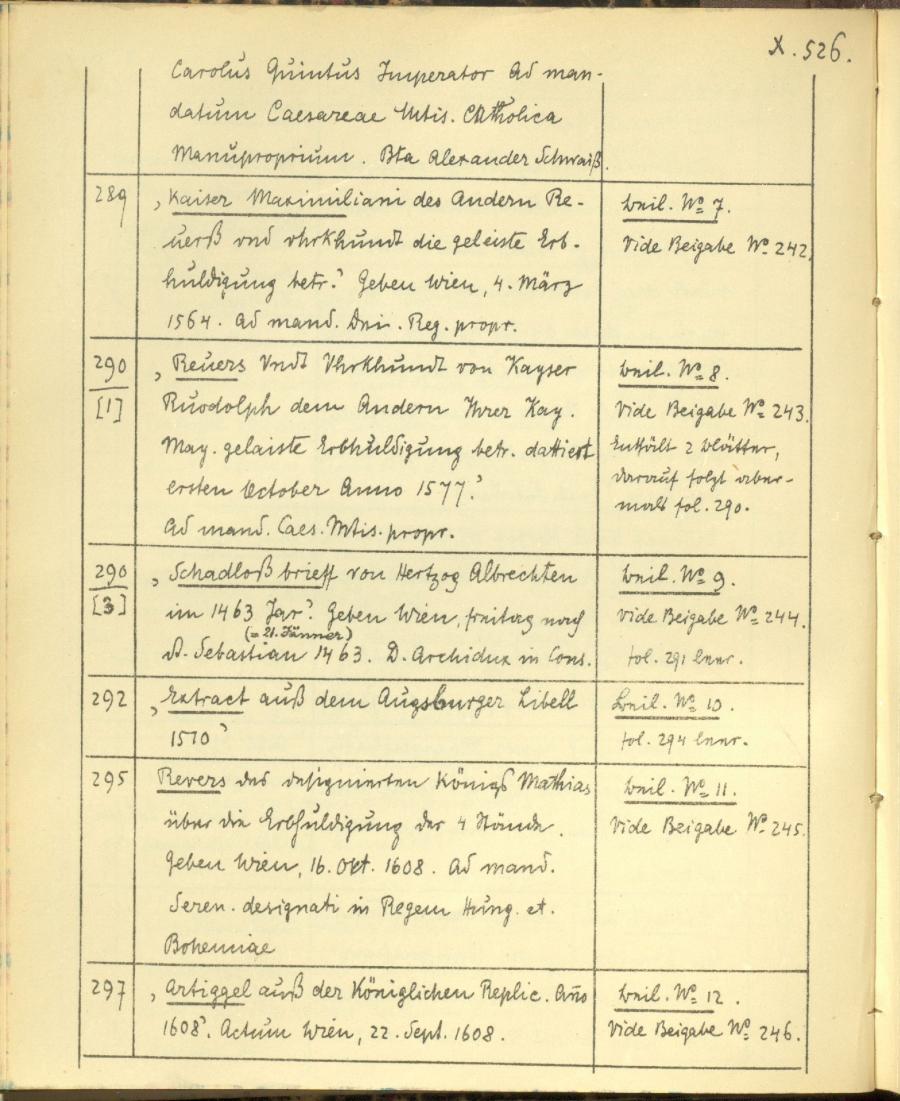 X. 526.
Carolus Quintus Imperator Ad man-
datum Caesareae Mtis. Catholica
Manuproprium. Bta Alexander Schwaiß.
289
‚Kaiser Maximiliani des Andern Re-
uerß vnd vhrkhundt die geleiste Erb-
huldigung betr.‘ Geben Wien, 4. März
1564. Ad mand. Dni. Reg. propr.
Beil. No 7.
Vide Beigabe No 242.
290
[1]
‚Reuers Vndt Vhrkhundt von Kayser
Ruodolph dem Andern Ihrer Kay.
May. gelaiste Erbhuldigung betr. dattiert
ersten October Anno 1577.‘
Ad mand. Caes. Mtis. propr.
Beil. No 8.
Vide Beigabe No 243.
Enthält 2 Blätter,
darauf folgt aber-
mals fol. 290.
290
[3]
‚Schadloß brieff von Hertzog Albrechten
im 1463 Jar‘. Geben Wien, freitag nach
(= 21. Jänner)
St. Sebastian 1463. D. Archidux in Cons.
Beil. No 9.
Vide Beigabe No 244.
fol. 291 leer.
292
‚Extract auß dem Augsburger Libell
1510‘
Beil. No 10.
fol. 294 leer.
295
Revers des designierten Königs Mathias
über die Erbhuldigung der 4 Stände.
Geben Wien, 16. Okt. 1608. Ad mand.
Seren. designati in Regem Hung. et.
Bohemiae
Beil. No 11.
Vide Beigabe No 245.
297
‚Artiggel auß der Königlichen Replic. Año
1608‘. Actum Wien, 22. Sept. 1608.
Beil. No 12.
Vide Beigabe No 246.